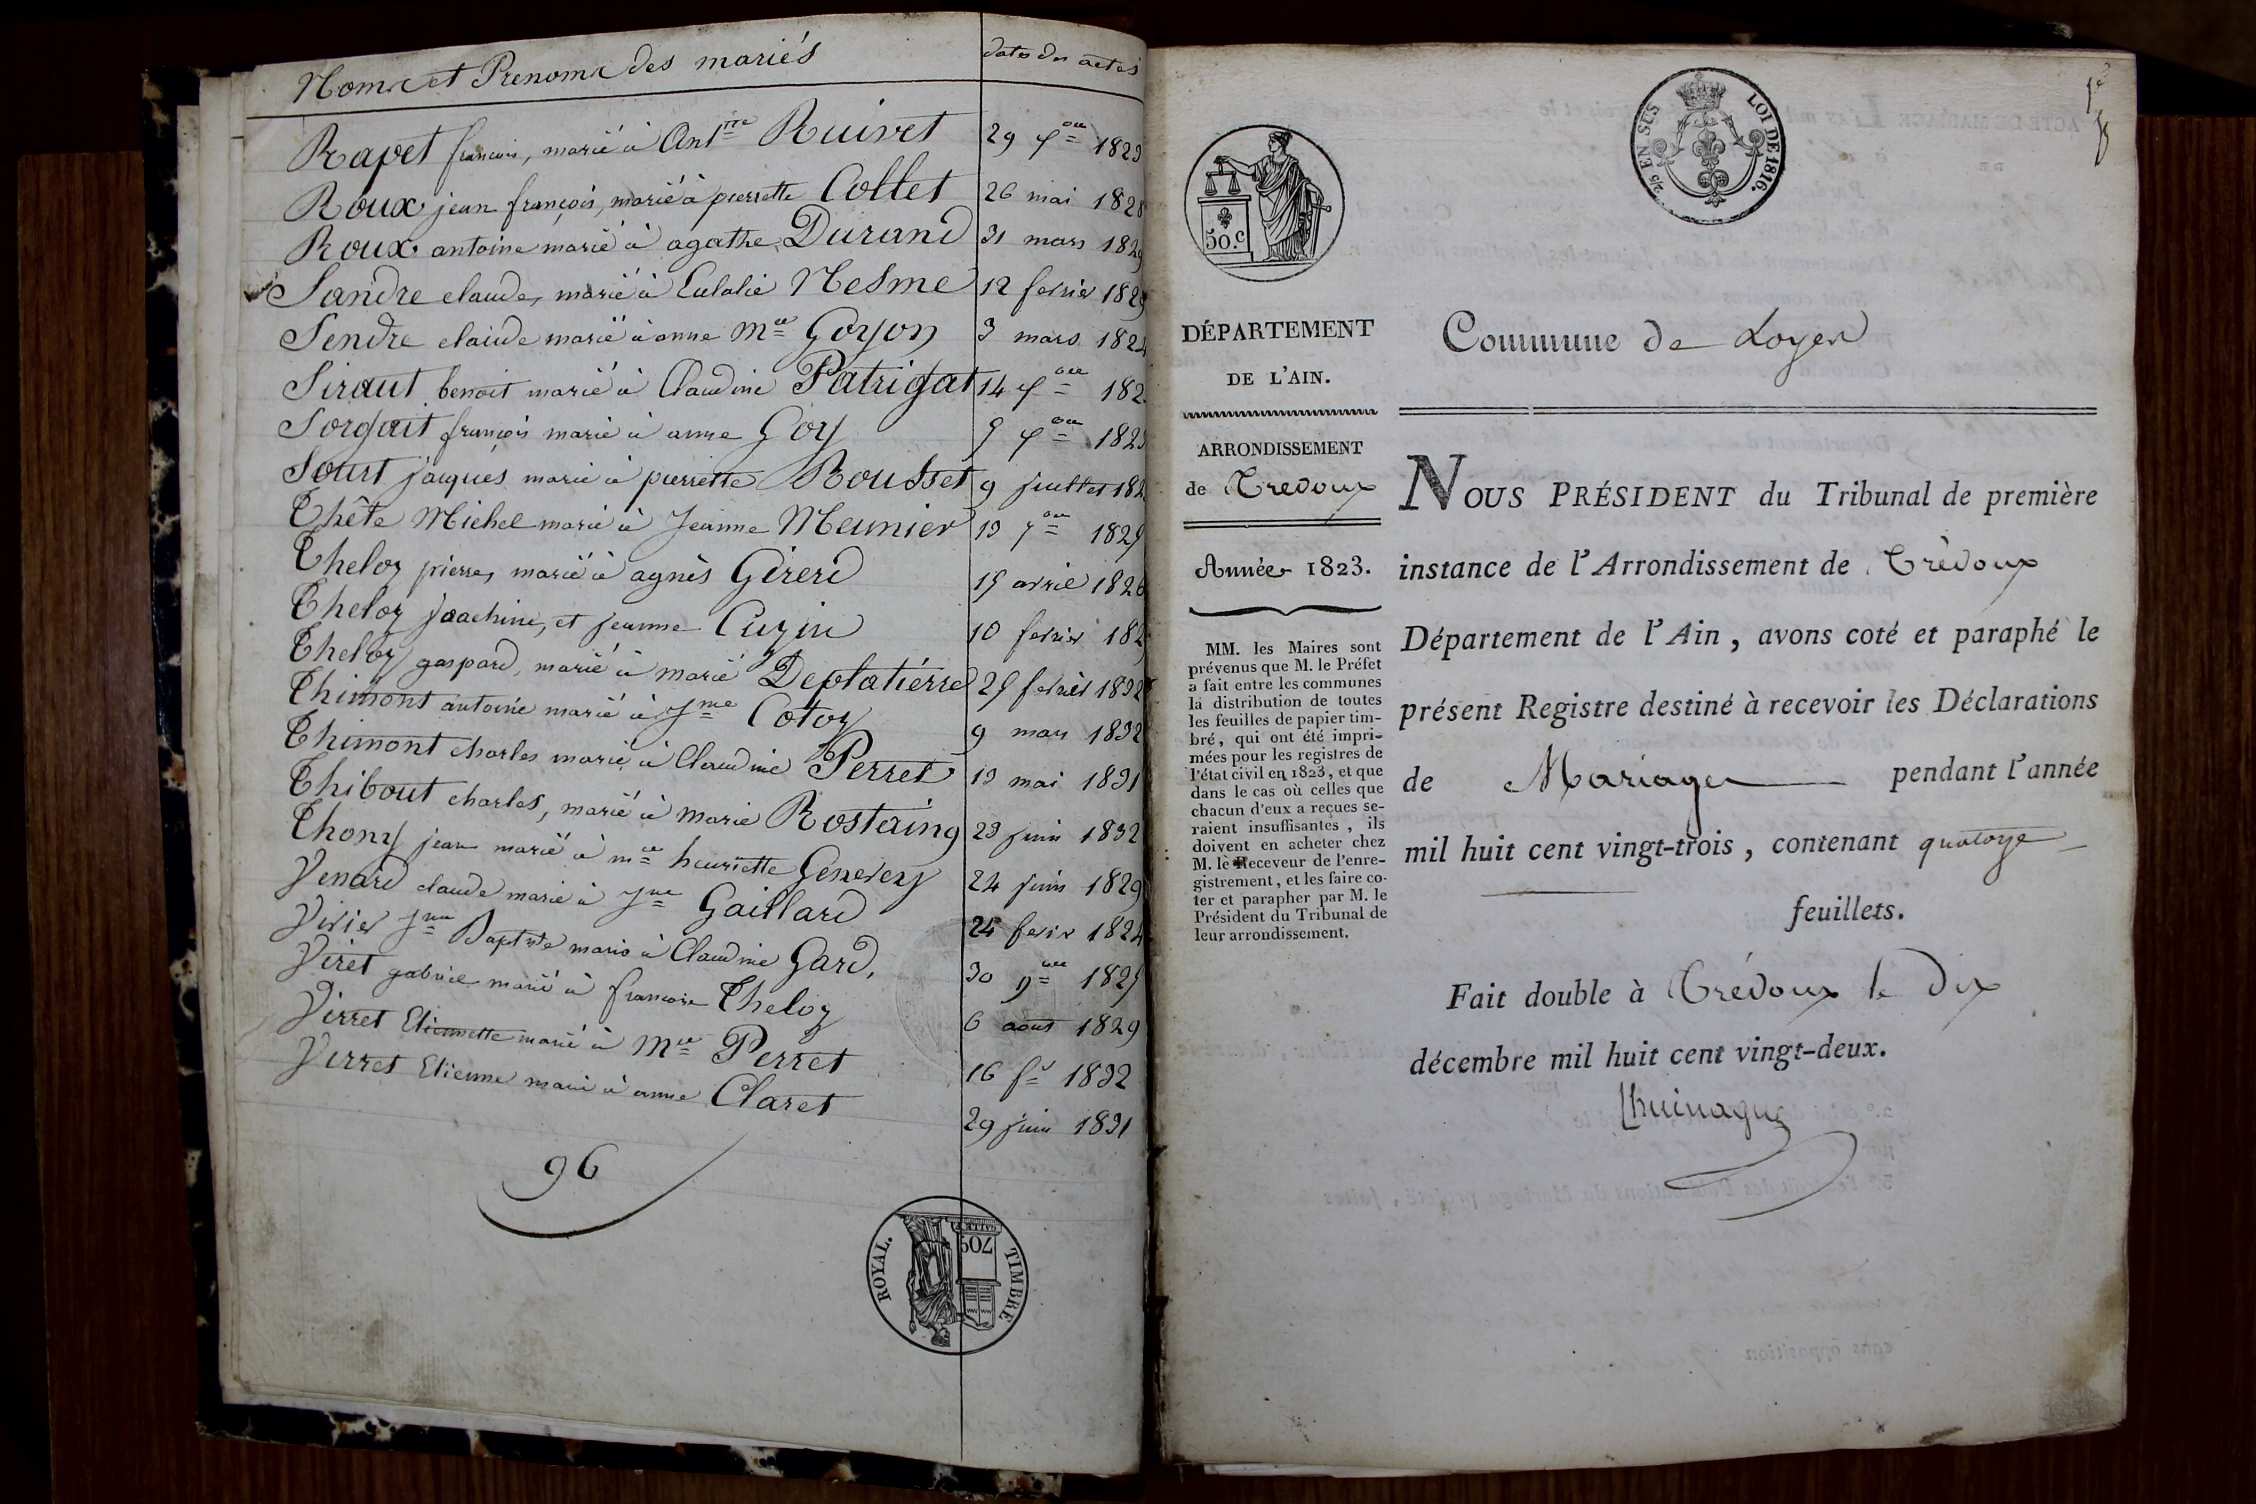 Noms et Prenoms des mariés
dates des actes
Rapet françois, marié à Ant.me Ruivet 29 9.bre 1823
Roux jean françois, marié à pierrette Collet 26 mai 1828
Roux antoine marié à agathe Durand 31 mars 1829
Sandre claude, marié à Eulalie Nesme 12 fevrier 1829
Sendre claude marié à anne M.ie Goyon 3 mars 1824
Siraut benoit marié à Claudine Patrigat 14
Sorgait françois marié à anne Goy
Sourt jacques marié à pierrette Rousset 9 juillet 182
Thête Michel marié à Jeanne Meunier 13 1829
Theloz pierre, marié à agnès Girerd 15 avril 1826
Theloz Joachim, et jeanne Cuzin 10 fevrier 182
Theloz gaspard, marié à marie Deplatierre 25 fevrier 1832
Thimont antoine marié à J.ne Cotoz 9 mars 1832
Thimont charles marié à Claudine Perret 13 mai 1831
Thibout charles, marié à marie Rostaing 23 juin 1832
Thony jean marié à m.ie henriette Genevey 24 juin 1829
Venard claude marié à J.ne Gaillard 24 fevrier 1824
Virier J.n Baptiste marié à Claudine Gard, 30 9.bre 1825
Viret gabriel marié à françoise Theloz 6 aout 1829
Virret Etiennette marié à M.ie Perret 16 f.r 1832
Virret Etienne marié à anne Claret 29 juin 1831
96
TIMBRE ROYAL.
2/5 EN SUS LOI DE 1816.
50.c
DÉPARTEMENT
DE L'AIN.
ARRONDISSEMENT
de Trévoux
Année 1823.
MM. les Maires sont
prévenus que M. le Préfet
a fait entre les communes
la distribution de toutes
les feuilles de papier tim-
bré, qui ont été impri-
mées pour les registres de
l'état civil en 1823, et que
dans le cas où celles que
chacun d'eux a reçues se-
raient insuffisantes, ils
doivent en acheter chez
M. le Receveur de l'enre-
gistrement, et les faire co-
ter et parapher par M. le
Président du Tribunal de
leur arrondissement.
Commune de Loyes
NOUS PRÉSIDENT du Tribunal de première
instance de l'Arrondissement de Trévoux
Département de l'Ain, avons coté et paraphé le
présent Registre destiné à recevoir les Déclarations
de Mariage pendant l'année
mil huit cent vingt-trois, contenant quatorze
feuillets.
Fait double à Trévoux le dix
décembre mil huit cent vingt-deux.